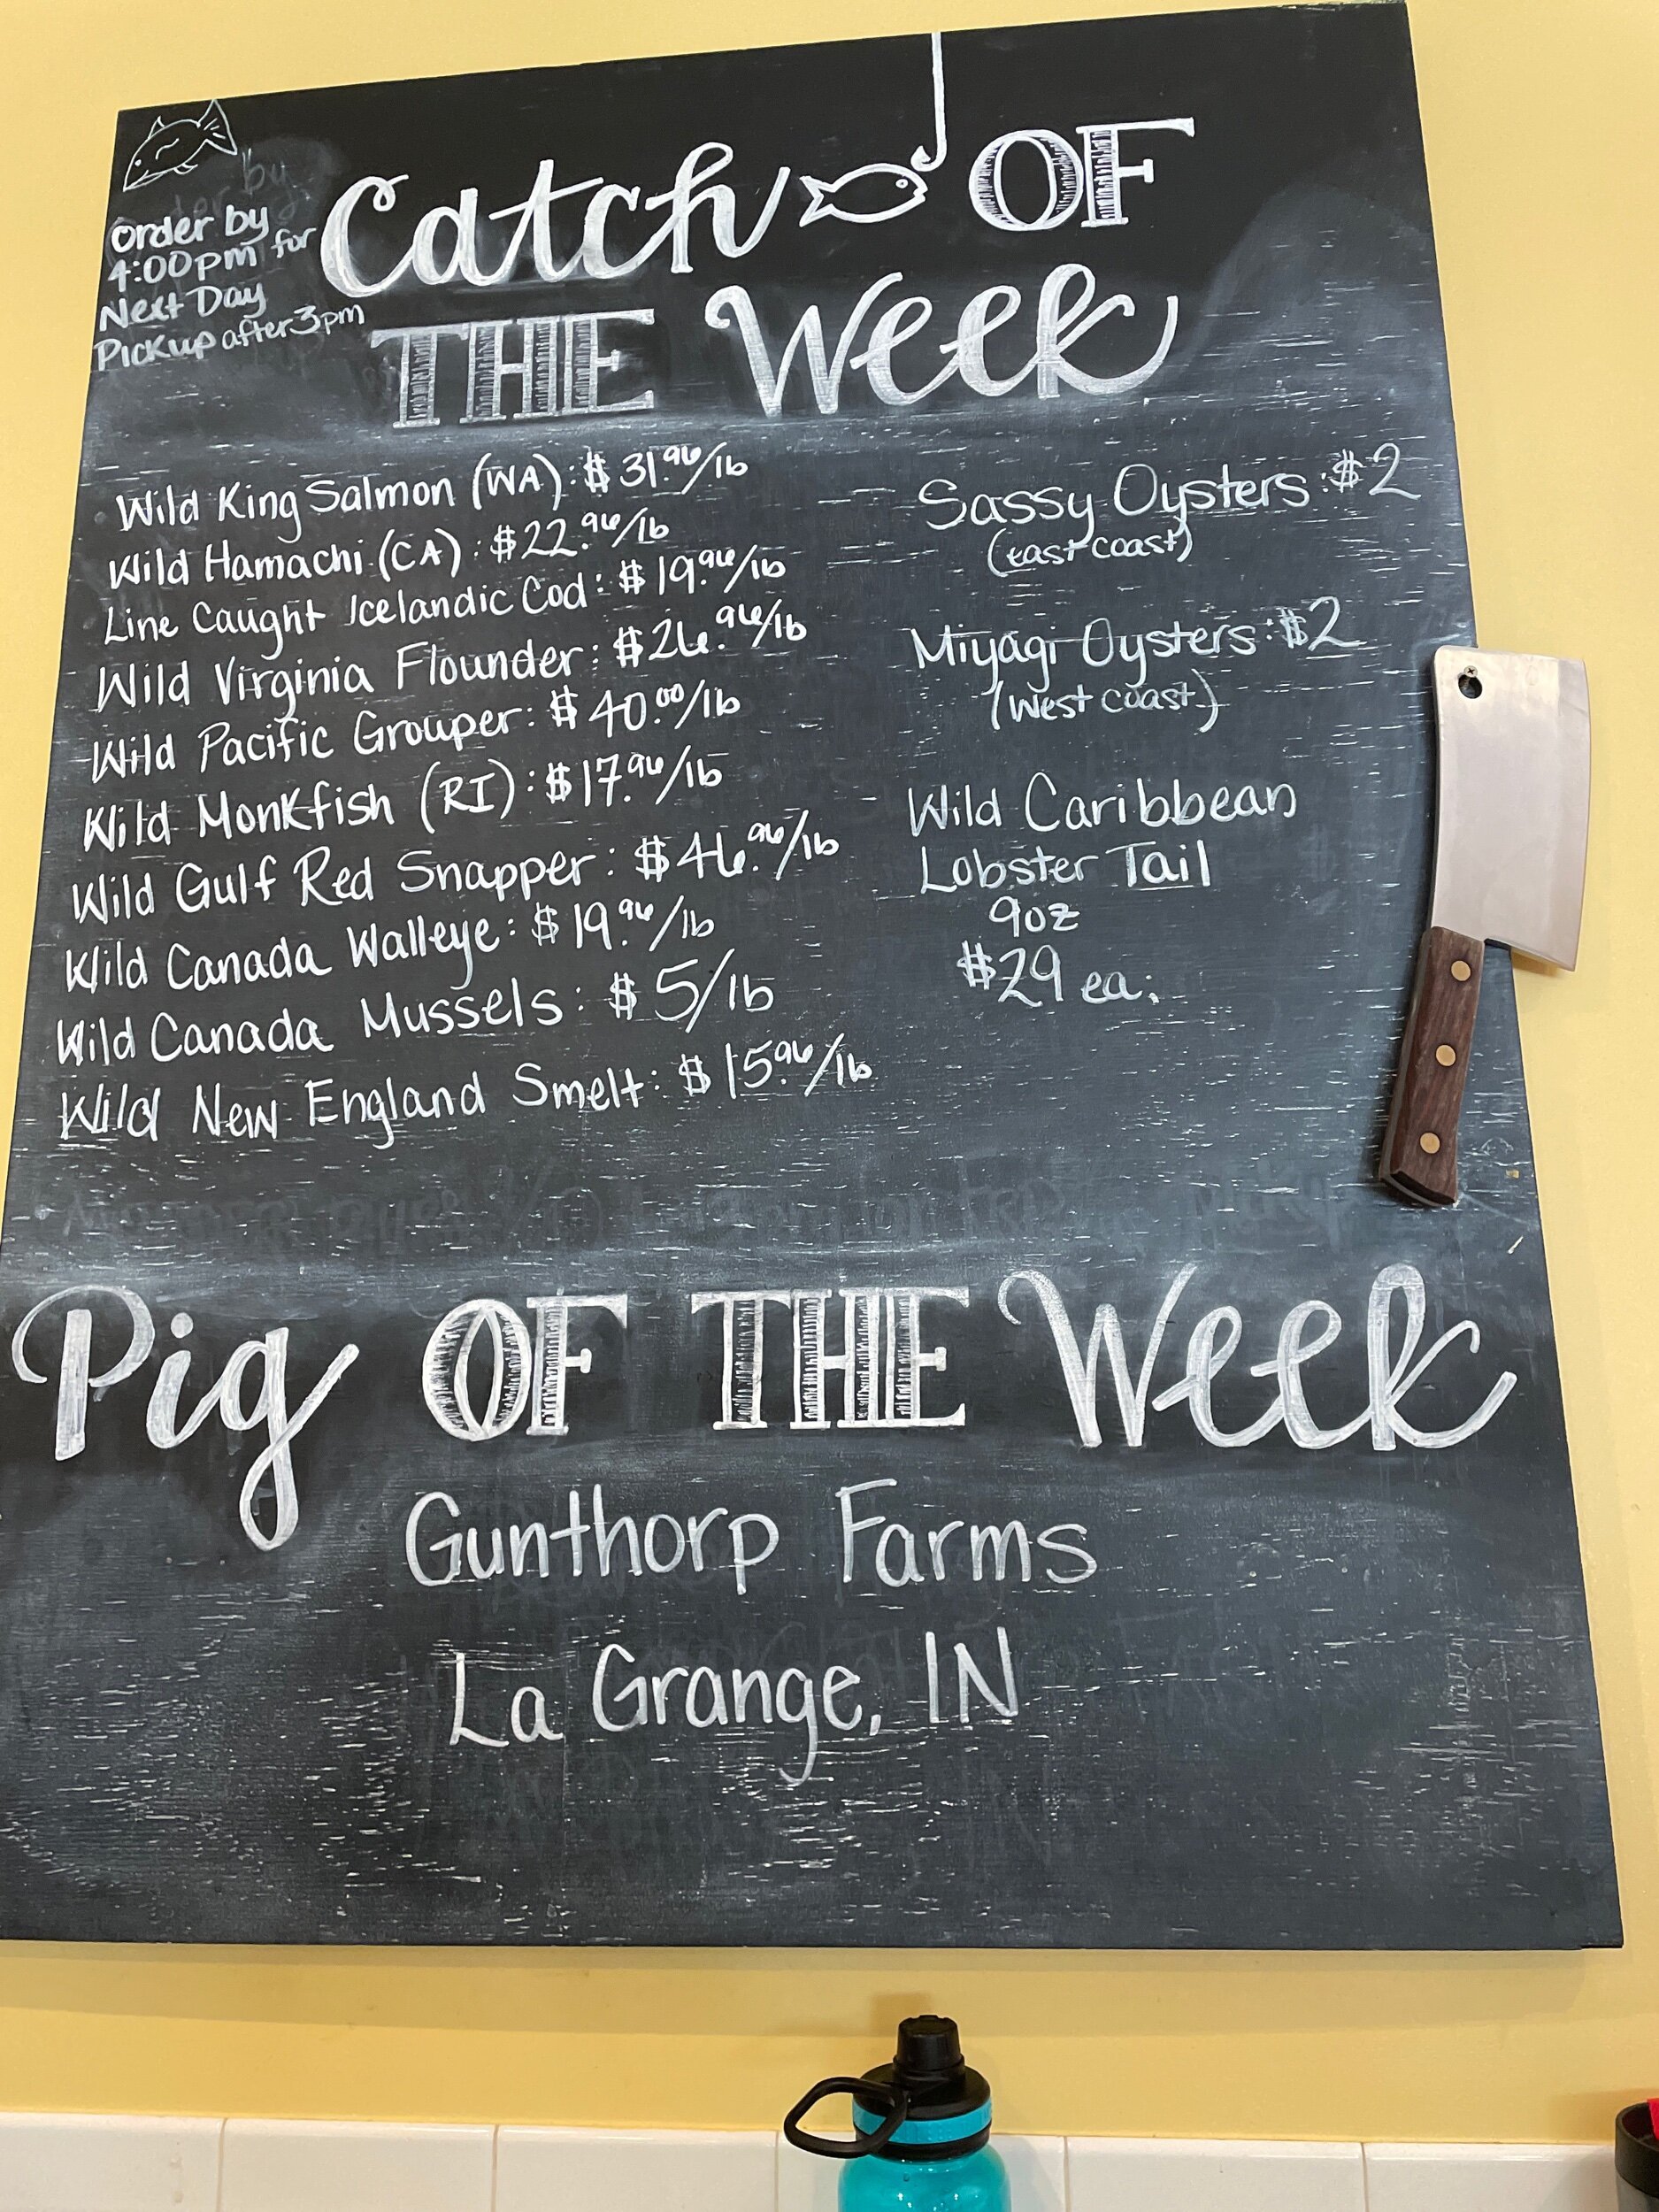 Order by
4:00pm for
Next Day
Pickup after 3pm
Catch OF
THE Week
Wild King Salmon (WA): $31.96/lb
Wild Hamachi (CA): $22.96/lb
Line Caught Icelandic Cod: $19.96/lb
Wild Virginia Flounder: $26.96/lb
Wild Pacific Grouper: $40.00/lb
Wild Monkfish (RI): $17.96/lb
Wild Gulf Red Snapper: $46.96/lb
Wild Canada Walleye: $19.96/lb
Wild Canada Mussels: $5/lb
Wild New England Smelt: $15.96/lb
Sassy Oysters: $2
(east coast)
Miyagi Oysters: $2
(West coast)
Wild Caribbean
Lobster Tail
9oz
$29 ea.
Pig OF THE Week
Gunthorp Farms
La Grange, IN